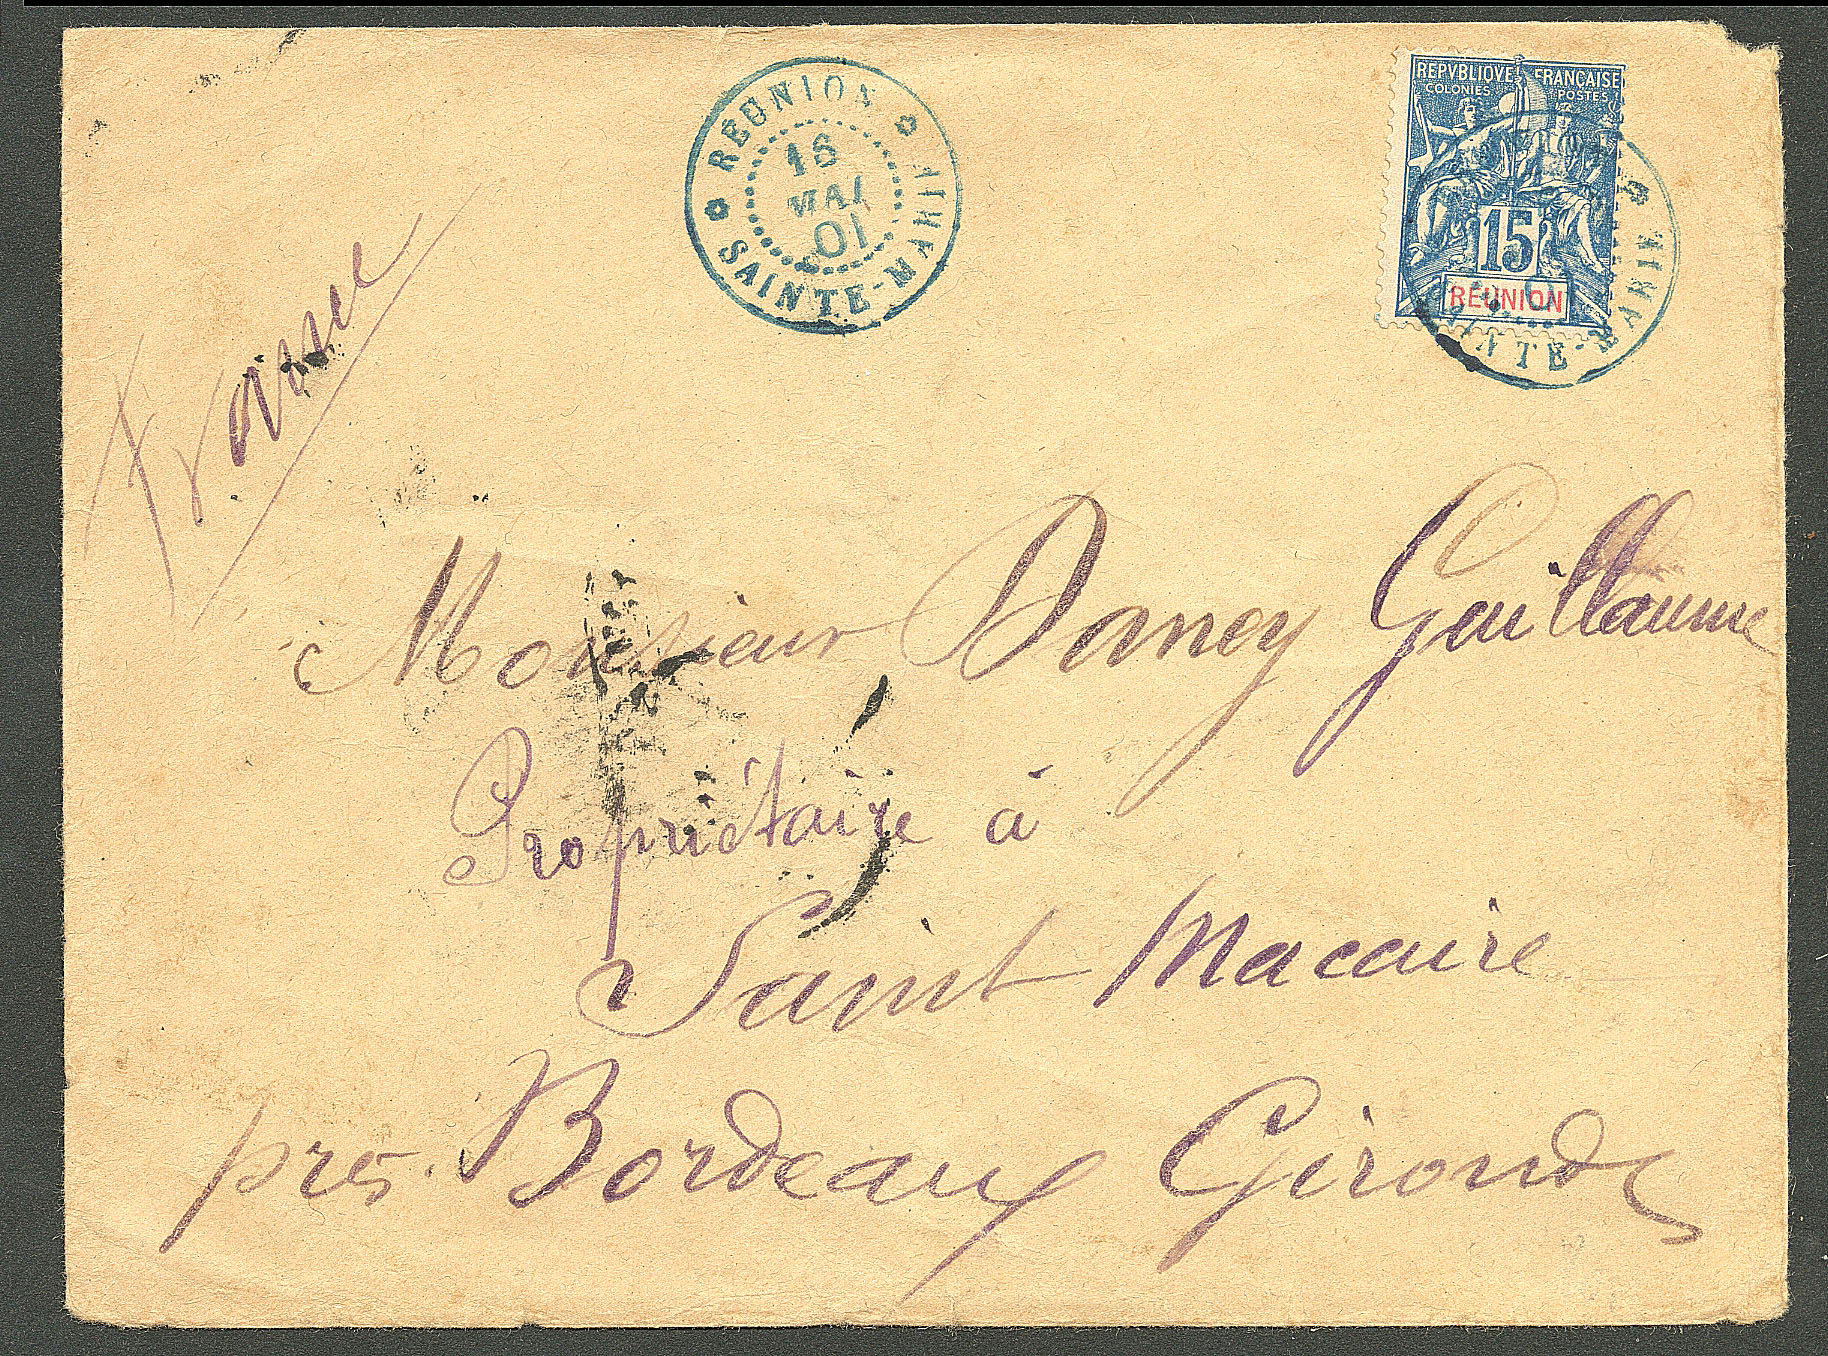 RÉUNION
16
MAI
01
SAINTE-MARIE
REPVBLIQVE FRANÇAISE
COLONIES POSTES
15
RÉUNION
SAINTE-MARIE
France
Monsieur Daney Guillaume
Propriétaire à
Saint Macaire
près Bordeaux Gironde